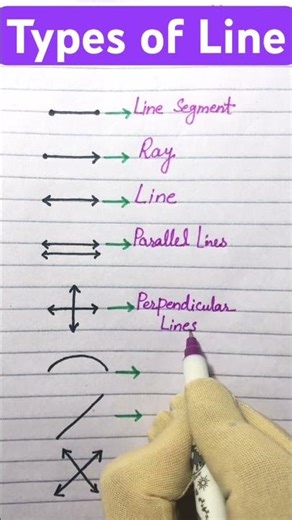 Types of Line
Line Segment
Ray
Line
Parallel Lines
Perpendicular
Lines